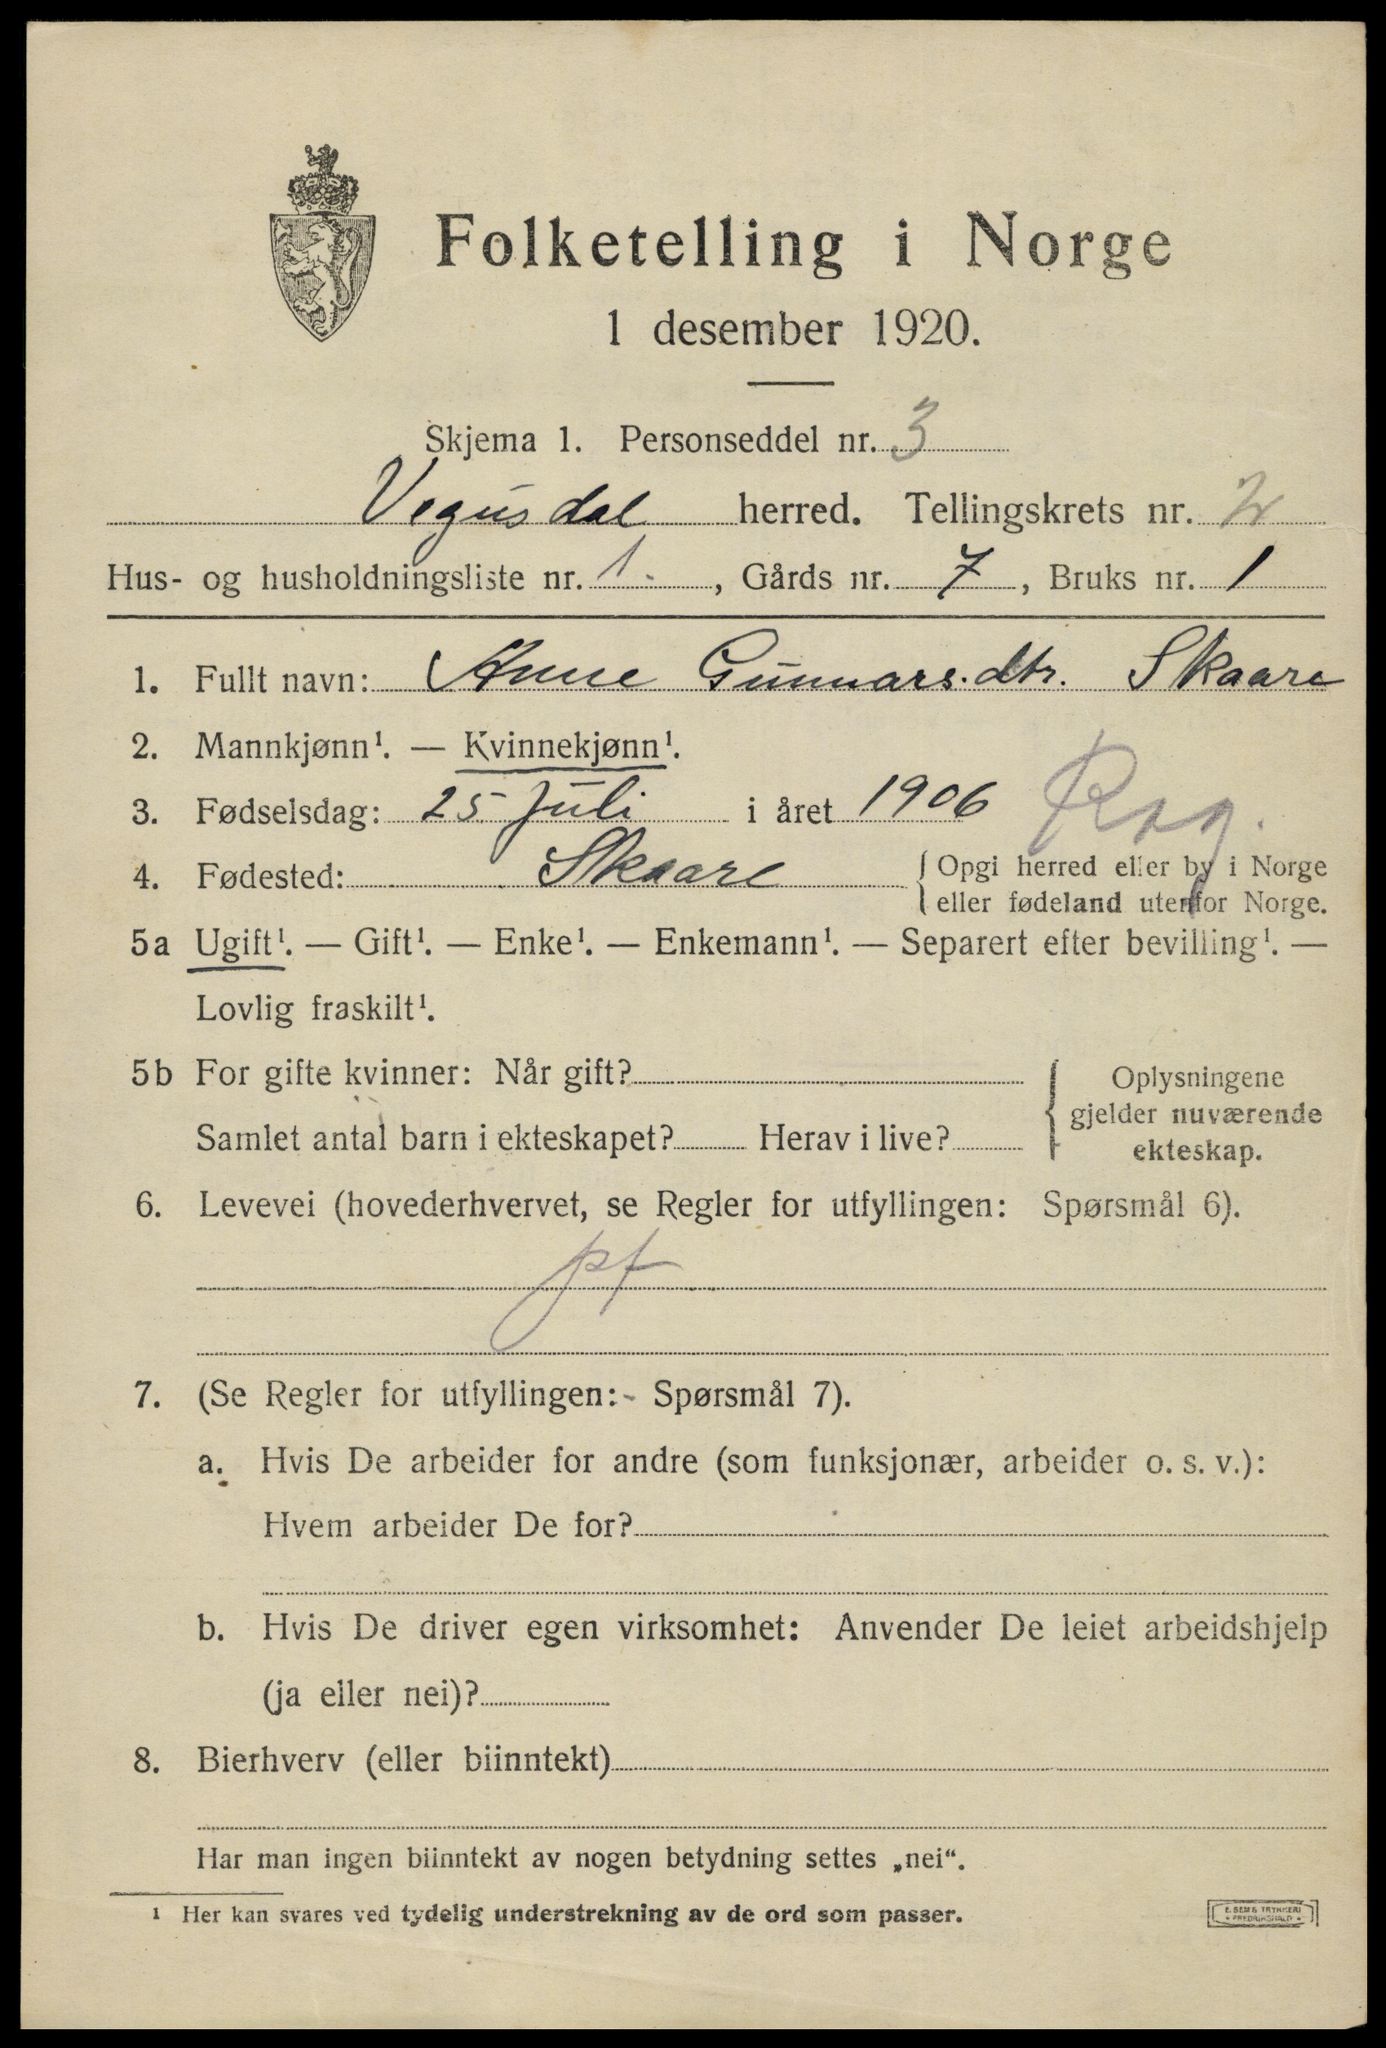 Folketelling i Norge
1 desember 1920.
Skjema 1. Personseddel nr. 3
Vegusdal herred. Tellingskrets nr. 2
Hus- og husholdningsliste nr. 1., Gårds nr. 7, Bruks nr. 1
1. Fullt navn: Anne Gunnarsdtr. Skaare
2. Mannkjønn¹. — Kvinnekjønn¹.
3. Fødselsdag: 25 Juli i året 1906
4. Fødested: Skaare { Opgi herred eller by i Norge
eller fødeland utenfor Norge.
5a Ugift¹. — Gift¹. — Enke¹. — Enkemann¹. — Separert efter bevilling¹. —
Lovlig fraskilt¹.
5b For gifte kvinner: Når gift?
Samlet antal barn i ekteskapet? Herav i live?
{ Oplysningene
gjelder nuværende
ekteskap.
6. Levevei (hovederhvervet, se Regler for utfyllingen: Spørsmål 6).
pf
7. (Se Regler for utfyllingen: Spørsmål 7).
a. Hvis De arbeider for andre (som funksjonær, arbeider o. s. v.):
Hvem arbeider De for?
b. Hvis De driver egen virksomhet: Anvender De leiet arbeidshjelp
(ja eller nei)?
8. Bierhverv (eller biinntekt)
Har man ingen biinntekt av nogen betydning settes „nei“.
¹ Her kan svares ved tydelig understrekning av de ord som passer.
E. SEMS TRYKKERI
FREDRIKSHALD